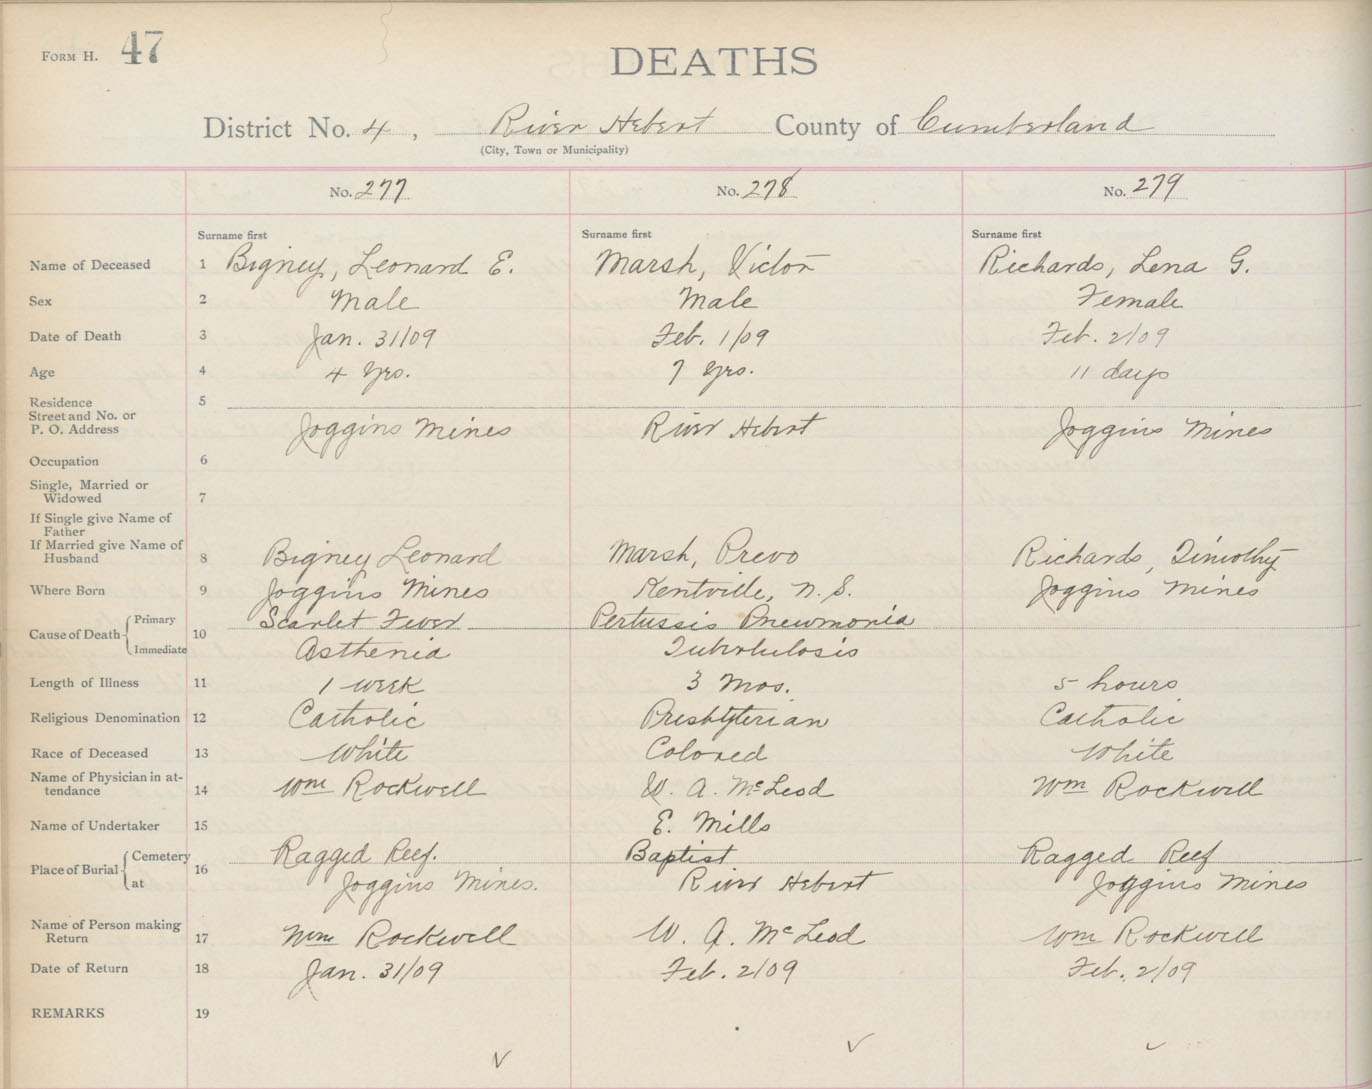 FORM H. 47
DEATHS
District No. 4, River Hebert County of Cumberland
(City, Town or Municipality)
No. 277 No. 278 No. 279
Surname first Surname first Surname first
Name of Deceased 1 Bigney, Leonard E. Marsh, Victor Richards, Lena G.
Sex 2 Male Male Female
Date of Death 3 Jan. 31/09 Feb. 1/09 Feb. 2/09
Age 4 4 yrs. 7 yrs. 11 days
Residence 5
Street and No. or
P. O. Address Joggins Mines River Hebert Joggins Mines
Occupation 6
Single, Married or
Widowed 7
If Single give Name of
Father
If Married give Name of
Husband 8 Bigney Leonard Marsh, Prevo Richards, Timothy
Where Born 9 Joggins Mines Kentville, N. S. Joggins Mines
Cause of Death 10 Primary Scarlet Fever Pertussis Pneumonia
Immediate Asthenia Tuberculosis
Length of Illness 11 1 week 3 Mos. 5 hours
Religious Denomination 12 Catholic Presbyterian Catholic
Race of Deceased 13 White Colored White
Name of Physician in at-
tendance 14 Wm Rockwell W. A. McLeod Wm Rockwell
Name of Undertaker 15 E. Mills
Place of Burial 16 Cemetery Ragged Reef. Baptist Ragged Reef
at Joggins Mines. River Hebert Joggins Mines
Name of Person making
Return 17 Wm Rockwell W. A. McLeod Wm Rockwell
Date of Return 18 Jan. 31/09 Feb. 2/09 Feb. 2/09
REMARKS 19